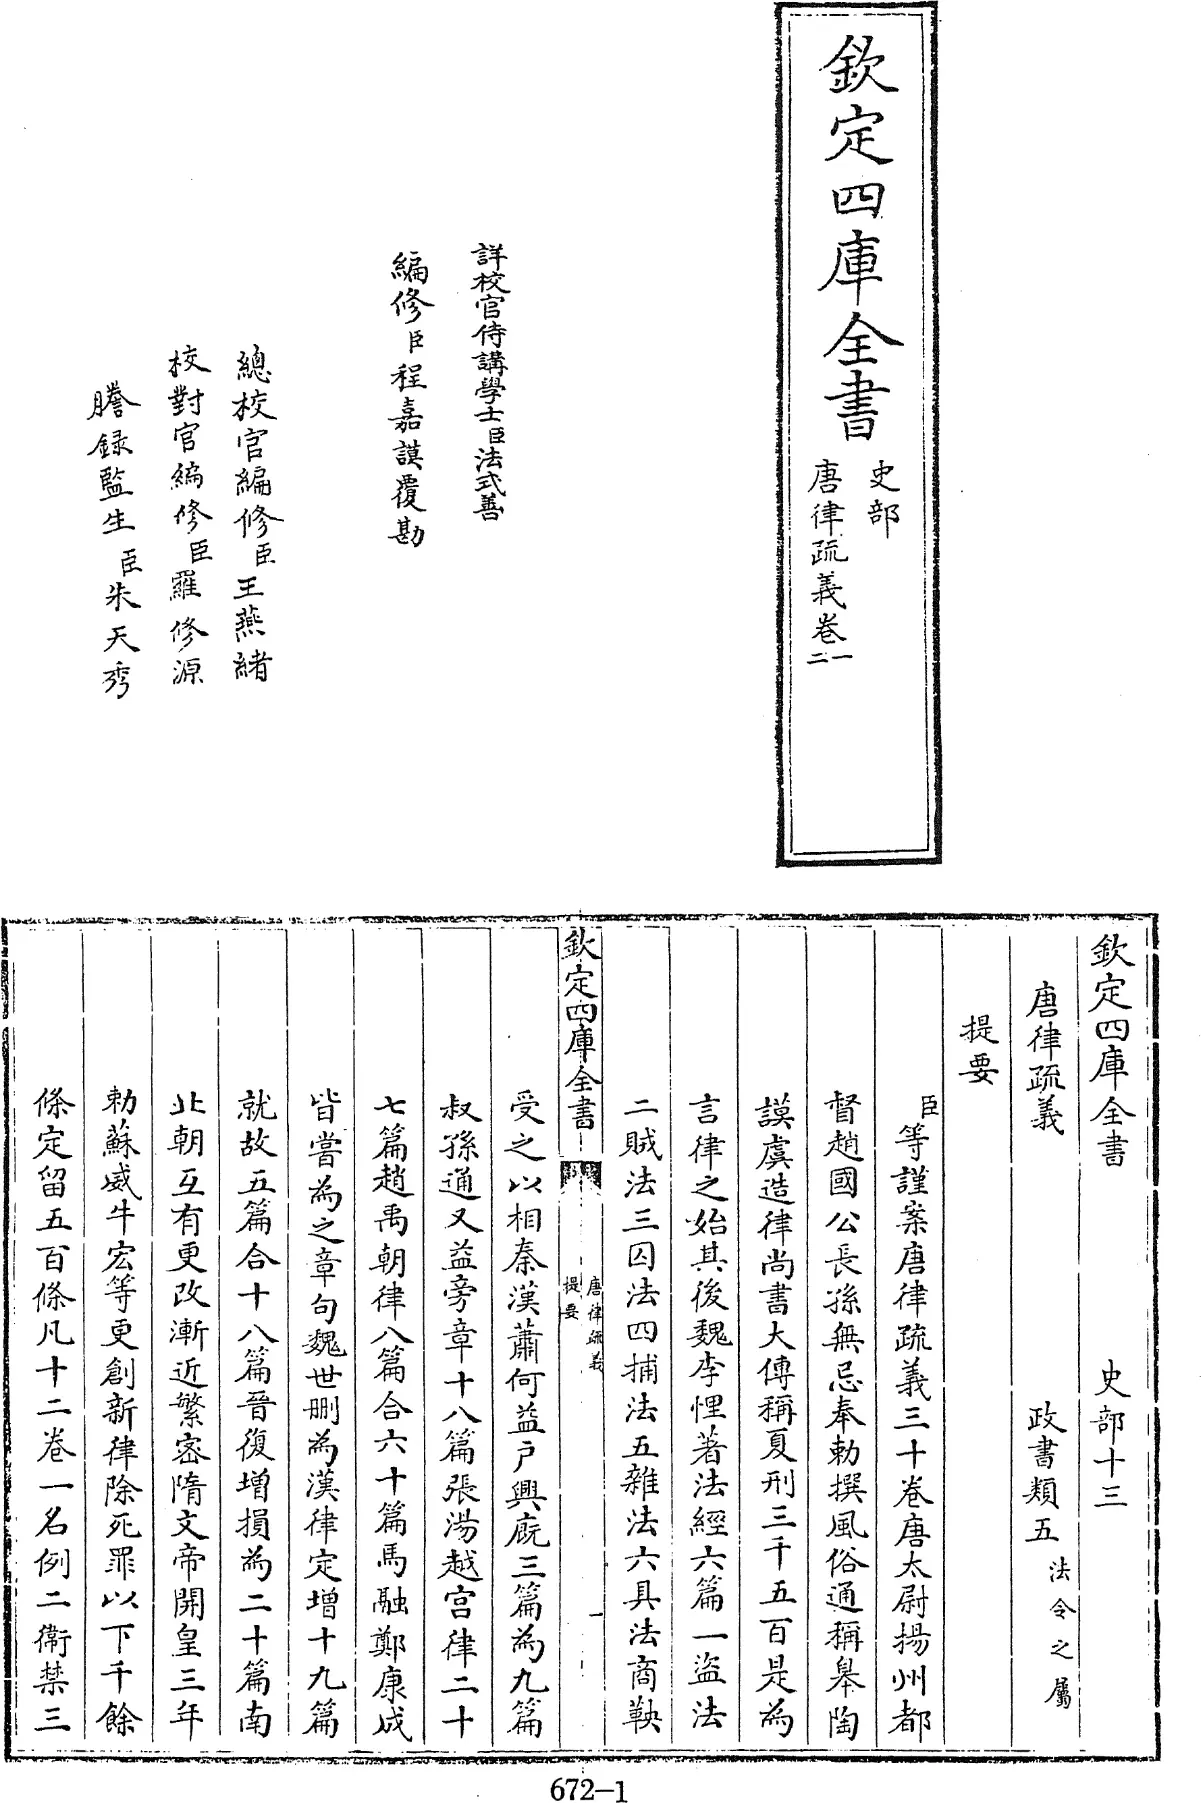 欽定四庫全書
史部
唐律疏義卷一
二
詳校官侍講學士臣法式善
編修臣程嘉謨覆勘
總校官編修臣王燕緒
校對官編修臣羅修源
謄錄監生臣朱天秀
欽定四庫全書 史部十三
唐律疏義 政書類五法令之屬
提要
臣等謹案唐律疏義三十卷唐太尉揚州都
督趙國公長孫無忌奉勅撰風俗通稱皋陶
謨虞造律尚書大傳稱夏刑三千五百是為
言律之始其後魏李悝著法經六篇一盜法
二賊法三囚法四捕法五雜法六具法商鞅
欽定四庫全書
唐律疏義
提要
一
受之以相秦漢蕭何益戶興廐三篇為九篇
叔孫通又益旁章十八篇張湯越宮律二十
七篇趙禹朝律八篇合六十篇馬融鄭康成
皆嘗為之章句魏世刪為漢律定增十九篇
就故五篇合十八篇晉復增損為二十篇南
北朝互有更改漸近繁密隋文帝開皇三年
勅蘇威牛宏等更創新律除死罪以下千餘
條定留五百條凡十二卷一名例二衛禁三
672-1